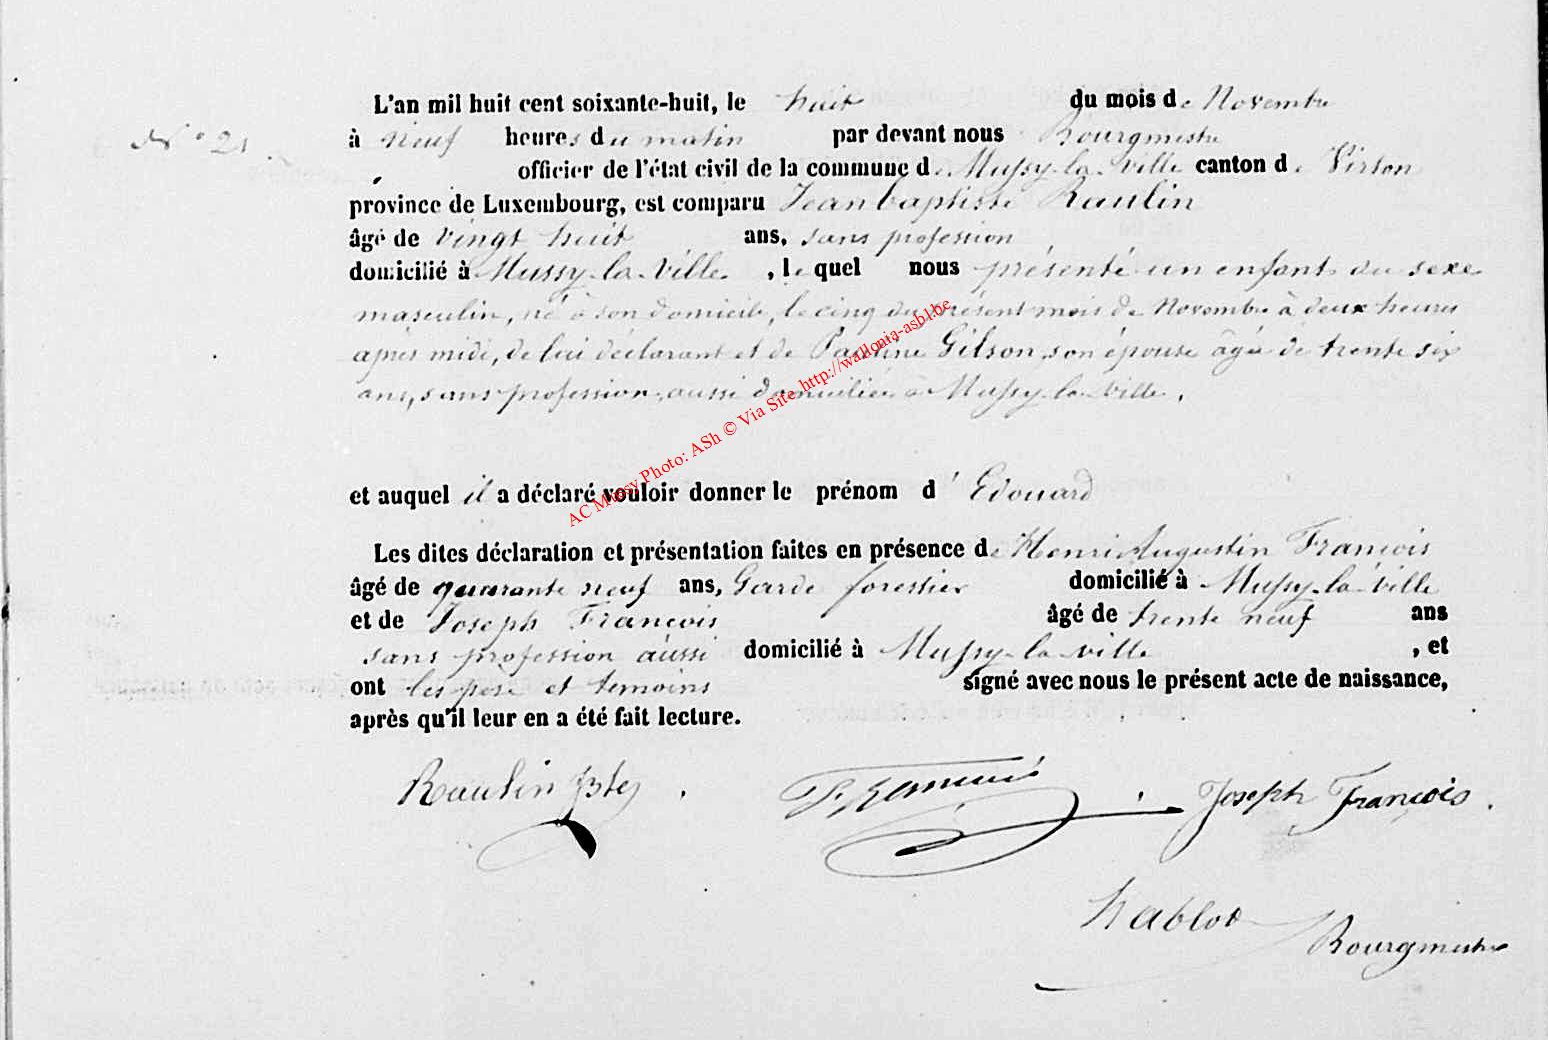 L'an mil huit cent soixante-huit, le huit du mois de Novembre
N° 21
à neuf heures du matin par devant nous Bourgmestre
officier de l'état civil de la commune de Mussy-la-Ville canton de Virton
province de Luxembourg, est comparu Jean baptiste Raulin
âgé de vingt huit ans, sans profession
domicilié à Mussy-la-Ville, lequel nous présenté un enfant du sexe
masculin, né à son domicile, le cinq du présent mois de Novembre à deux heures
après midi, de lui déclarant et de Pauline Gilson, son épouse âgée de trente six
ans, sans profession, aussi domiciliée à Mussy-la-Ville.
et auquel il a déclaré vouloir donner le prénom d'Edouard
Les dites déclaration et présentation faites en présence de Henri Augustin François
âgé de quarante neuf ans, Garde forestier domicilié à Mussy-la-Ville
et de Joseph François âgé de trente neuf ans
sans profession aussi domicilié à Mussy-la-ville, et
ont les père et temoins signé avec nous le présent acte de naissance,
après qu'il leur en a été fait lecture.
Raulin Jbte. François Joseph François.
Hablot
Bourgmestre
AC Mussy Photo: ASh © Via Site http://wallonia-asbl.be